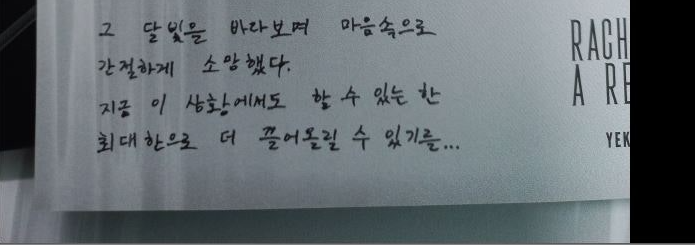 그 달빛을 바라보며 마음속으로
간절하게 소망했다.
지금 이 상황에서도 할 수 있는 한
최대한으로 더 끌어올릴 수 있기를...
RACH
A RE
YEK